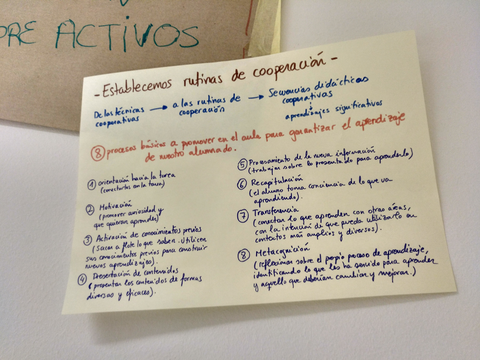 PRE ACTIVOS
- Establecemos rutinas de cooperación -
De las técnicas cooperativas → a las rutinas de cooperación → Secuencias didácticas cooperativas
↓
aprendizajes significativos
⑧ procesos básicos a promover en el aula para garantizar el aprendizaje
de nuestro alumnado.
① orientación hacia la tarea
(conectarlos con la tarea)
② Motivación
(promover curiosidad y
que quieran aprender)
③ Activación de conocimientos previos
(sacar a flote lo que saben. Utilicen
sus conocimientos previos para construir
nuevos aprendizajes)
④ Presentación de contenidos
(presentar los contenidos de formas
diversas y eficaces).
⑤ Procesamiento de la nueva información
(trabajar sobre lo presentado para aprenderlo)
⑥ Recapitulación
(el alumno toma conciencia de lo que va
aprendiendo).
⑦ Transferencia
(conectar lo que aprenden con otras áreas,
con la intención de que pueda utilizarlo en
contextos más amplios y diversos).
⑧ Metacognición
(reflexionar sobre el propio proceso de aprendizaje,
identificando lo que les ha servido para aprender
y aquello que deberían cambiar y mejorar.)